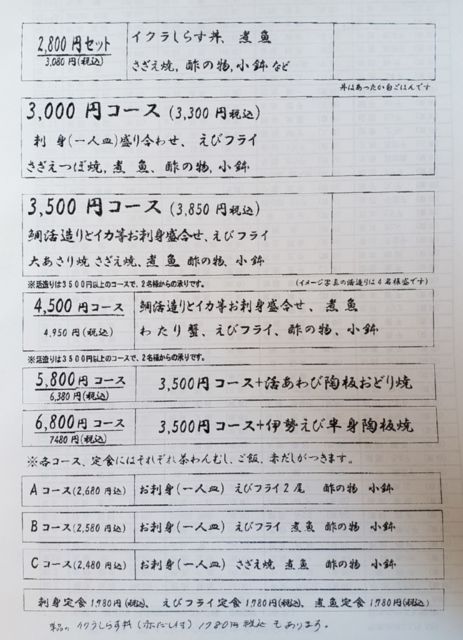 2,800円セット
3,080円(税込)
イクラしらす丼、煮魚
さざえ焼, 酢の物, 小鉢 など
丼はあったか白ごはんです
3,000円コース (3,300円税込)
刺身(一人皿)盛り合わせ、えびフライ
さざえつぼ焼, 煮魚、酢の物, 小鉢
3,500円コース (3,850円税込)
鯛活造りとイカ等お刺身盛合せ、えびフライ
大あさり焼 さざえ焼, 煮魚 酢の物, 小鉢
※活造りは3500円以上のコースで、2名様からの承りです。
(イメージ写真の活造りは4名様盛です)
4,500円コース
4,950円(税込)
鯛活造りとイカ等お刺身盛合せ、煮魚
わたり蟹、えびフライ、酢の物、小鉢
※活造りは3500円以上のコースで、2名様からの承りです。
5,800円コース
6,380円(税込)
3,500円コース+活あわび陶板おどり焼
6,800円コース
7480円(税込)
3,500円コース+伊勢えび半身陶板焼
※各コース、定食にはそれぞれ茶わんむし、ご飯、赤だしがつきます。
Aコース(2,680円込) お刺身(一人皿) えびフライ2尾 酢の物 小鉢
Bコース(2,580円込) お刺身(一人皿) えびフライ 煮魚 酢の物 小鉢
Cコース(2,480円込) お刺身(一人皿) さざえ焼 煮魚 酢の物 小鉢
刺身定食1,780円(税込)、えびフライ定食1780円(税込)、煮魚定食1780円(税込)
単品の イクラしらす丼(赤だし付) 1780円税込 もあります。